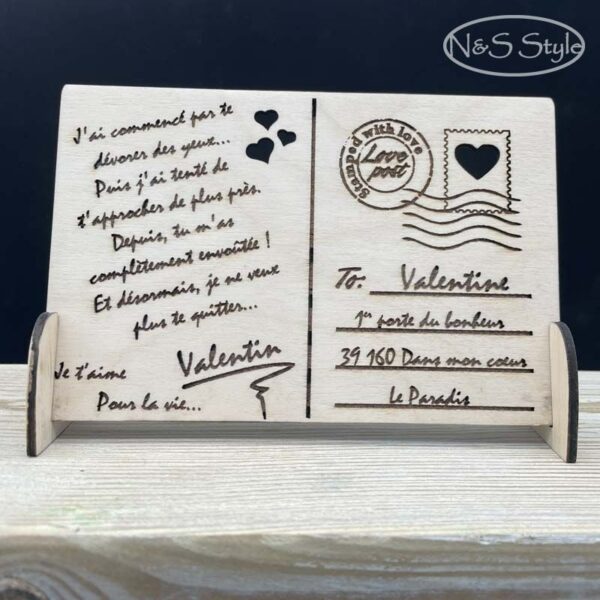 N&S Style
J'ai commencé par te
dévorer des yeux...
Puis j'ai tenté de
t'approcher de plus près.
Depuis, tu m'as
complètement envoûtée !
Et désormais, je ne veux
plus te quitter...
Je t'aime
Valentin
Pour la vie...
Stamped with love
Love
post
To: Valentine
1er porte du bonheur
39 160 Dans mon cœur
Le Paradis